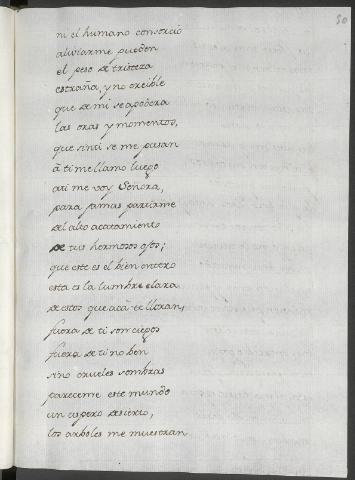 50
ni el humano consorcio
aliviarme pueden
el peso de tristeza
estraña, y no creible
que de mi se apodera
las oras y momentos,
que sinti se me pasan
á ti me llamo luego
ati me voy Señora,
para jamas partirme
del alto acatamiento
de tus hermosos ojos;
que este es el bien entero
esta es la lumbre clara
de estos que acá te lloran,
fuera de ti son ciegos
fuera de ti no ven
sino crueles sombras
pareceme este mundo
un espero desierto,
los arboles me muestran